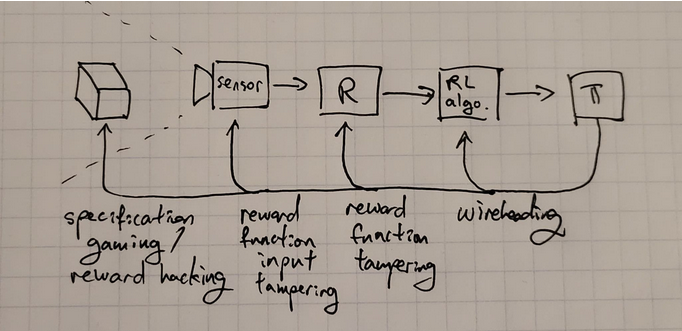 sensor
R
RL
algo.
π
specification
gaming /
reward hacking
reward
function
input
tampering
reward
function
tampering
wireheading